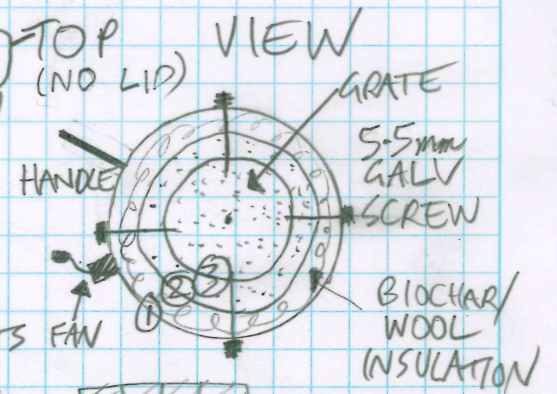 TOP VIEW
(NO LID)
GRATE
5.5mm
GALV
SCREW
HANDLE
3
2
1
FAN
BIOCHAR/
WOOL
INSULATION